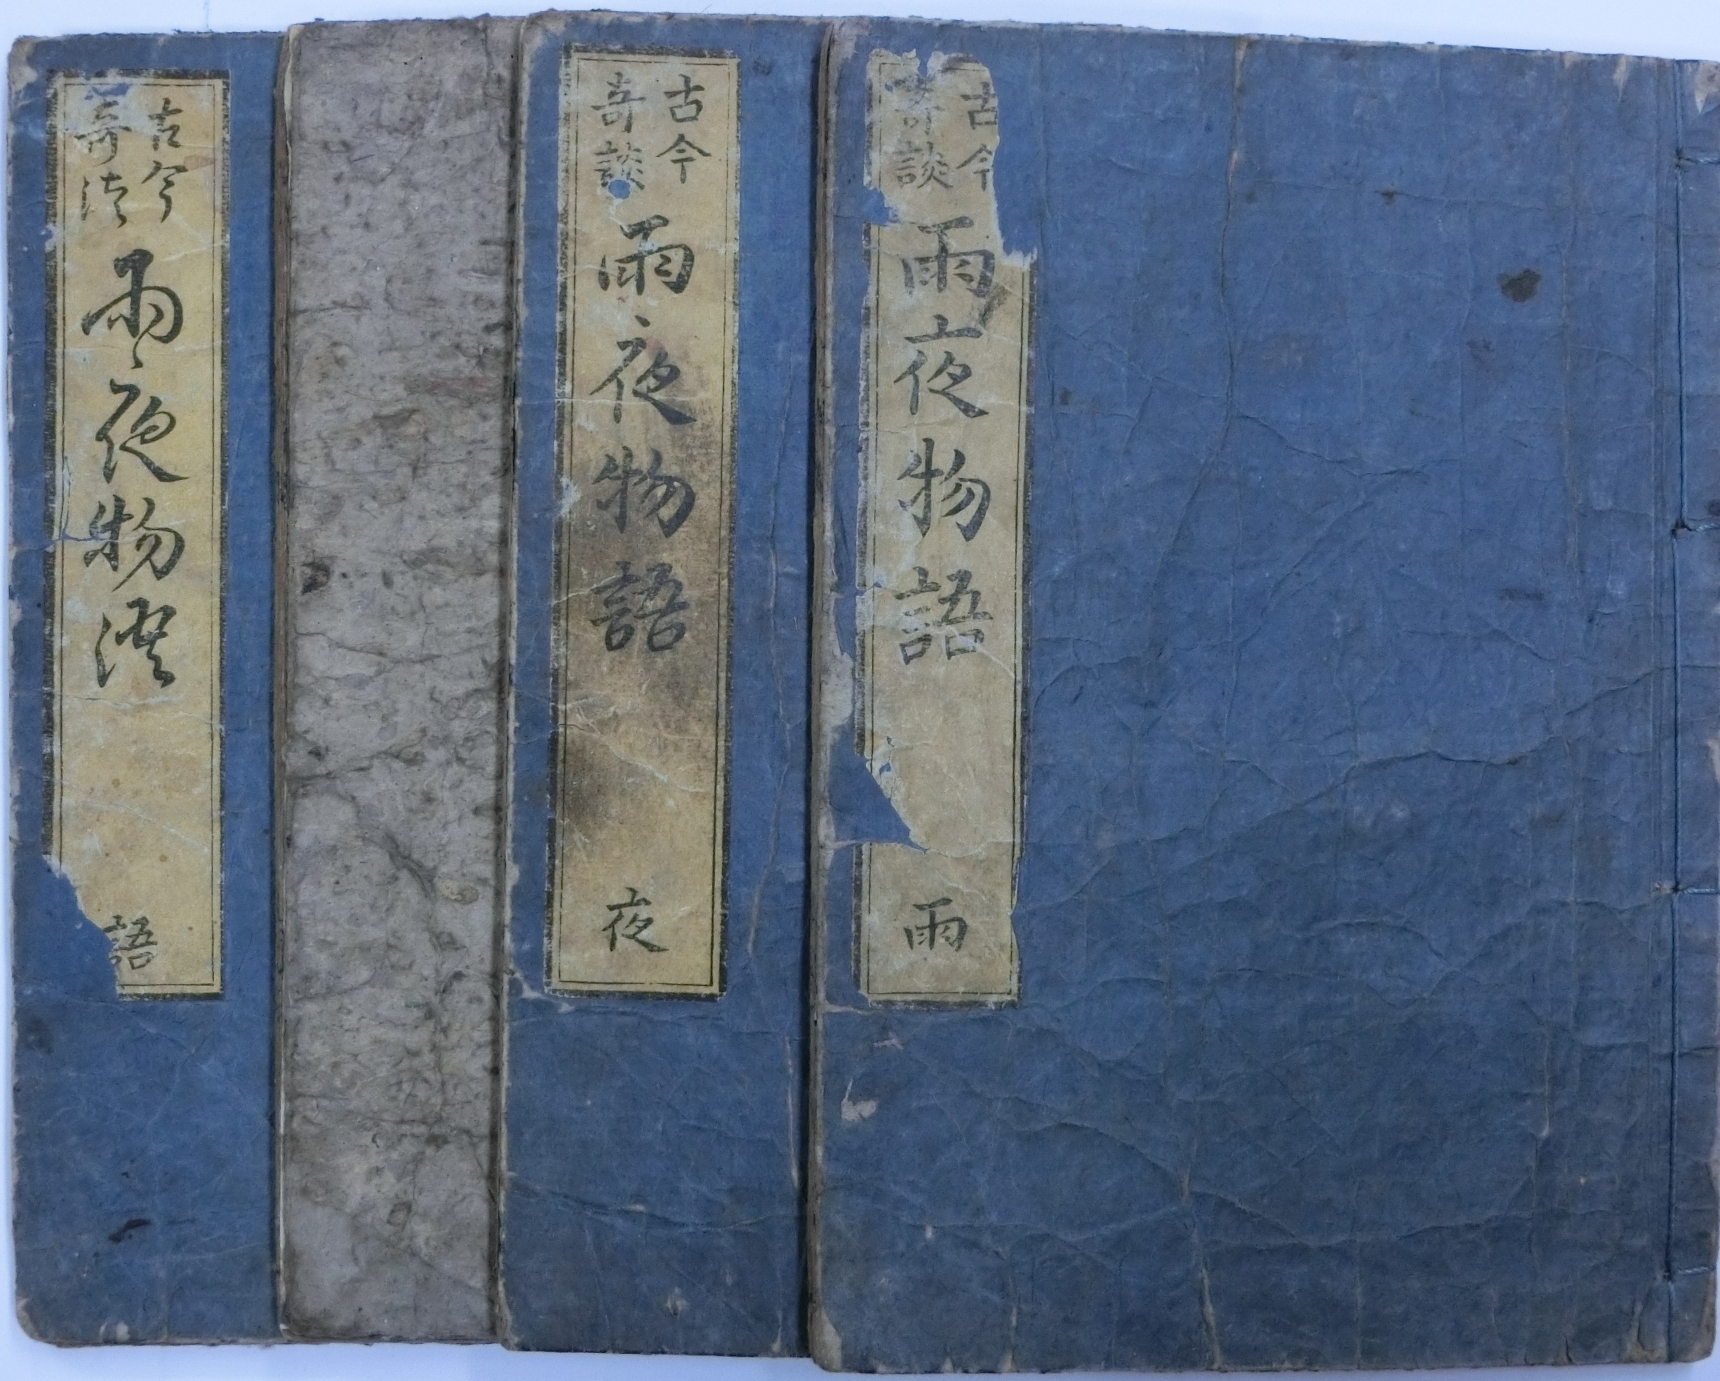 古今
奇談
雨夜物語
雨
古今
奇談
雨夜物語
夜
古今
奇談
雨夜物語
語